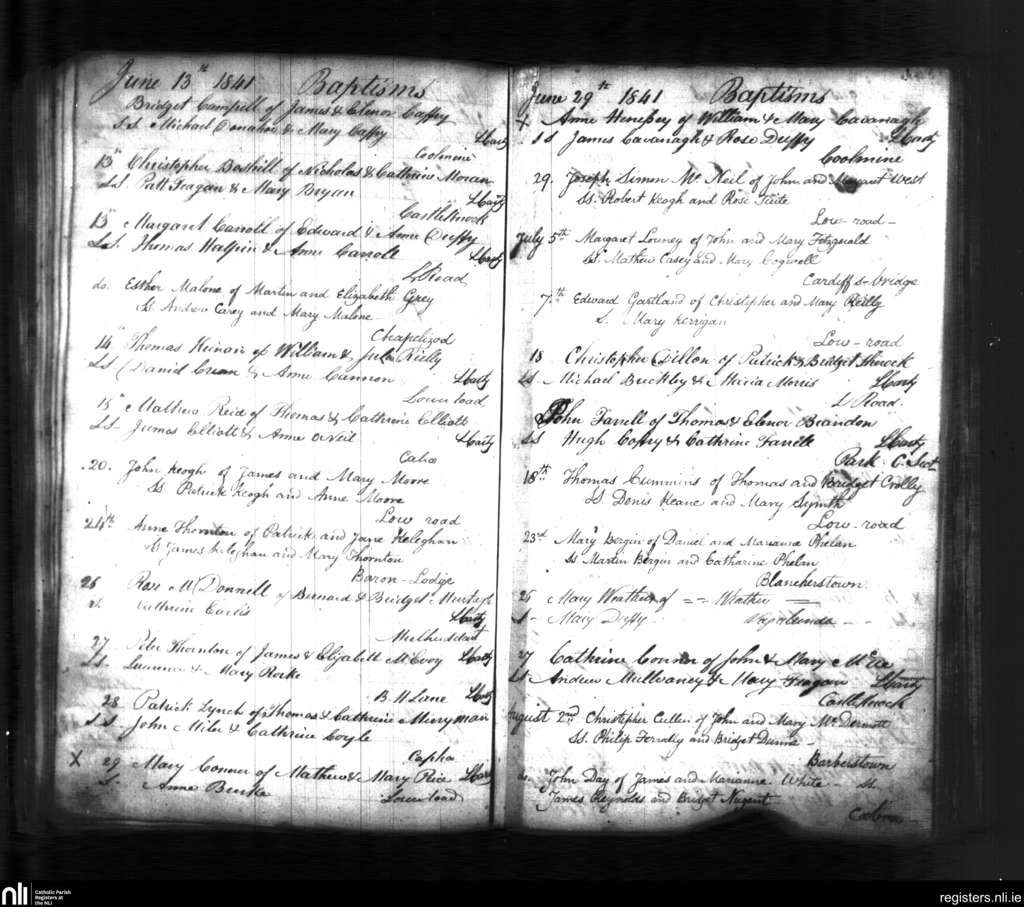 June 13th 1841 Baptisms
Bridget Campell of James & Elenor Caffry
SS Michael Donahoe & Mary Caffry
LCarty
Coolmine
13th Christopher of Nicholas & Cathrine Moran
SS. Patt Feagan & Mary Bryan
LCarty
Castleknock
13th Margaret Carroll of Edward & Anne Duffy
SS. Thomas Halpin & Anne Carroll
LCarty
L Road
do. Esther Malone of Martin and Elizabeth Grey
Ss Andrew Carey and Mary Malone
Chapelizod
14th Thomas of William & Julia Rielly
SS Daniel & Anne Cannon
LCarty
Lower load
15th Mathew Reid of Thomas & Cathrine Elliott
SS. James Elliott & Anne O Neil
LCarty
20. John Keogh of James and Mary Moore
Ss Patrick Keogh and Anne Moore
Low road
24th Anne Thornton of Patrick and Jane Keleghan
James Keleghan and Mary Thornton
Baron-Lodge
26 Rose McDonnell of Bernard & Bridget
s. Cathrine
LCarty
27 Peter Thornton of James & Elizabeth McEvoy
LCarty
SS Laurence & Mary Rorke
B H Lane
28 Patrick Lynch of Thomas & Cathrine Merryman
LCarty
SS John Miler & Cathrine Coyle
X 29 Mary Connor of Mathew & Mary Rice
LCarty
S. Anne Burke
Lower load
June 29th 1841 Baptisms
X Anne Henessy of William & Mary Cavanagh
SS James Cavanagh & Rose Duffy
LCarty
Coolmine
29. Joseph Simon Mc Neil of John and Margaret West
Ss. Robert Keogh and Rose
Low road-
July 5th Margaret Louney of John and Mary Fitzgerald
SS. Mathew Casey and Mary Cogwell
Cardiff's-bridge
7th Edward Gartland of Christopher and Mary Reilly
S. Mary Kerrigan
Low-road
18 Christopher Dillon of Patrick & Bridget
SS. Michael Buckley & Maria Morris
LCarty
L Road.
John Farrell of Thomas & Elenor Brandon
SS Hugh & Cathrine Farrell
LCarty
Park
18th Thomas Cummins of Thomas and Bridget Crolly
Ss Denis Keane and Mary Symth
Low-road
23rd Mary Bergin of Daniel and Marianne Phelan
Ss Martin Bergin and Catharine Phelan
Blanchertstown
25 Mary of == ==
S- Mary Duffy
27 Cathrine Connor of John & Mary
SS Andrew Mullvaney & Mary Feagan
LCarty
Castleknock
August 2nd Christopher Cullen of John and Mary McDermott
SS. Philip and Bridget Dunne-
Barberstown
do. John Day of James and Marianne White - ss.
James Reynolds and Bridget Nugent
nli Catholic Parish Registers at the NLI
registers.nli.ie